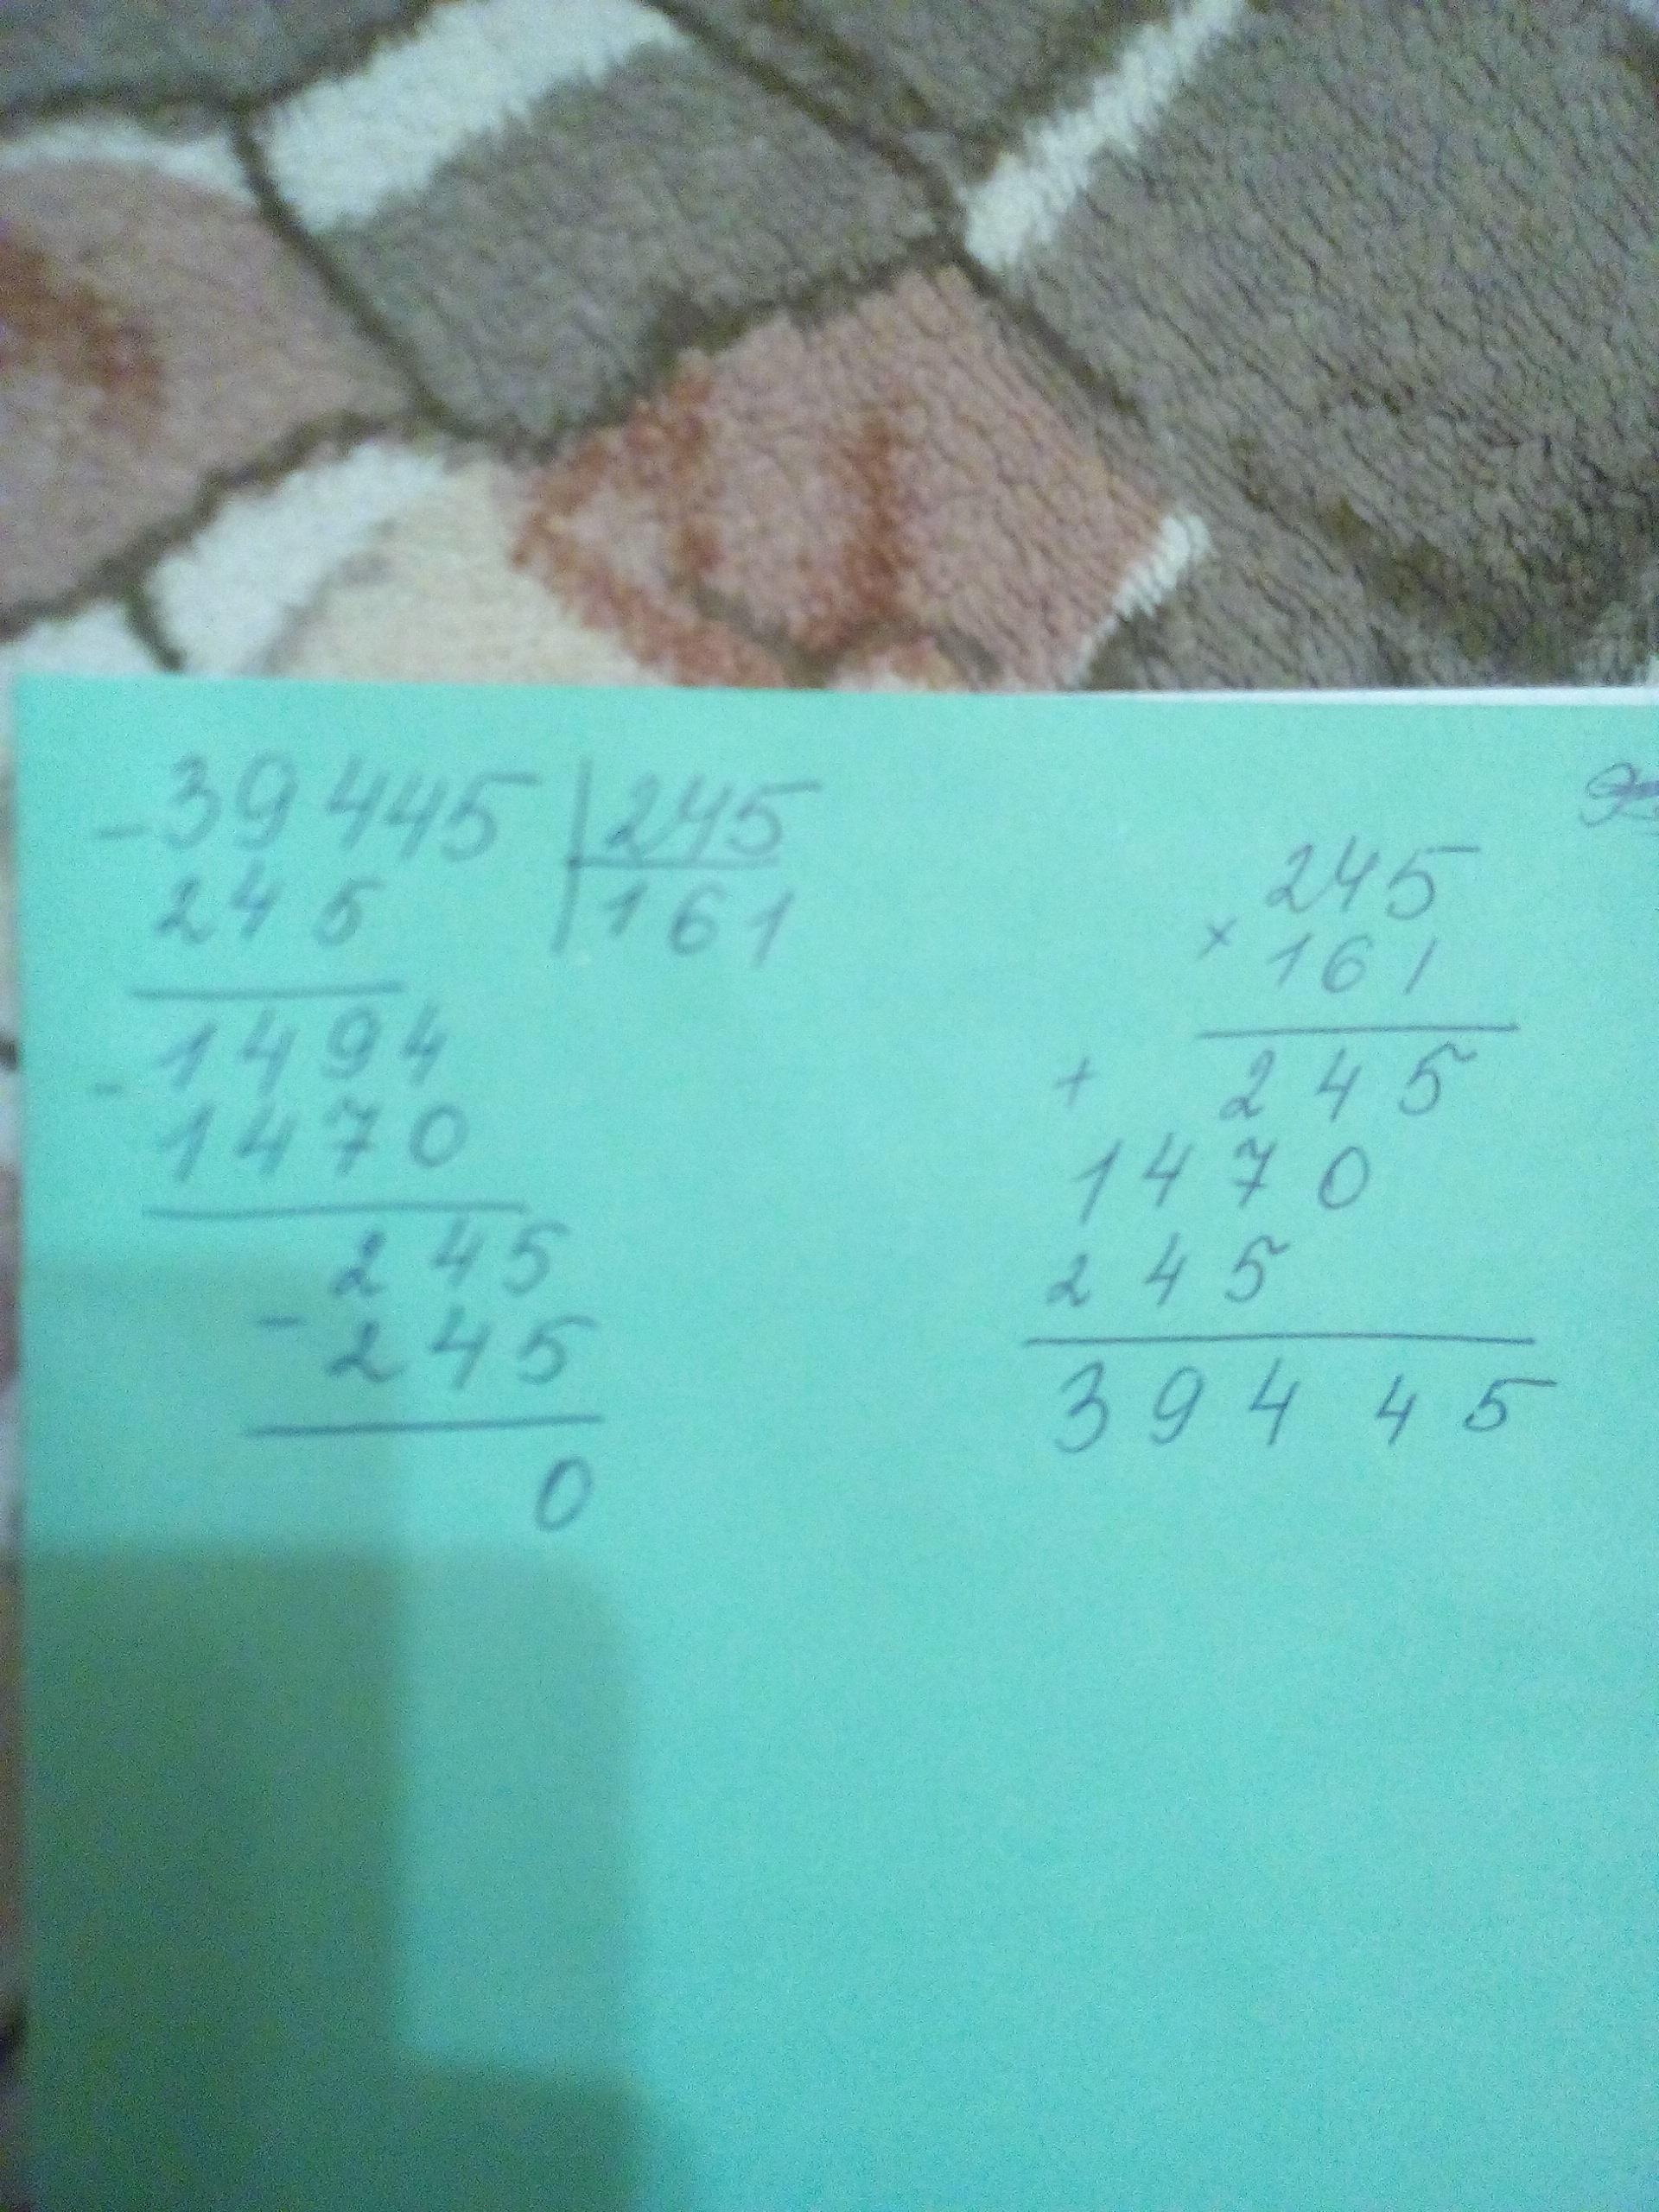 - 39445 | 245
245 | 161
1494
- 1470
245
- 245
0
245
× 161
+ 245
1470
245
39445